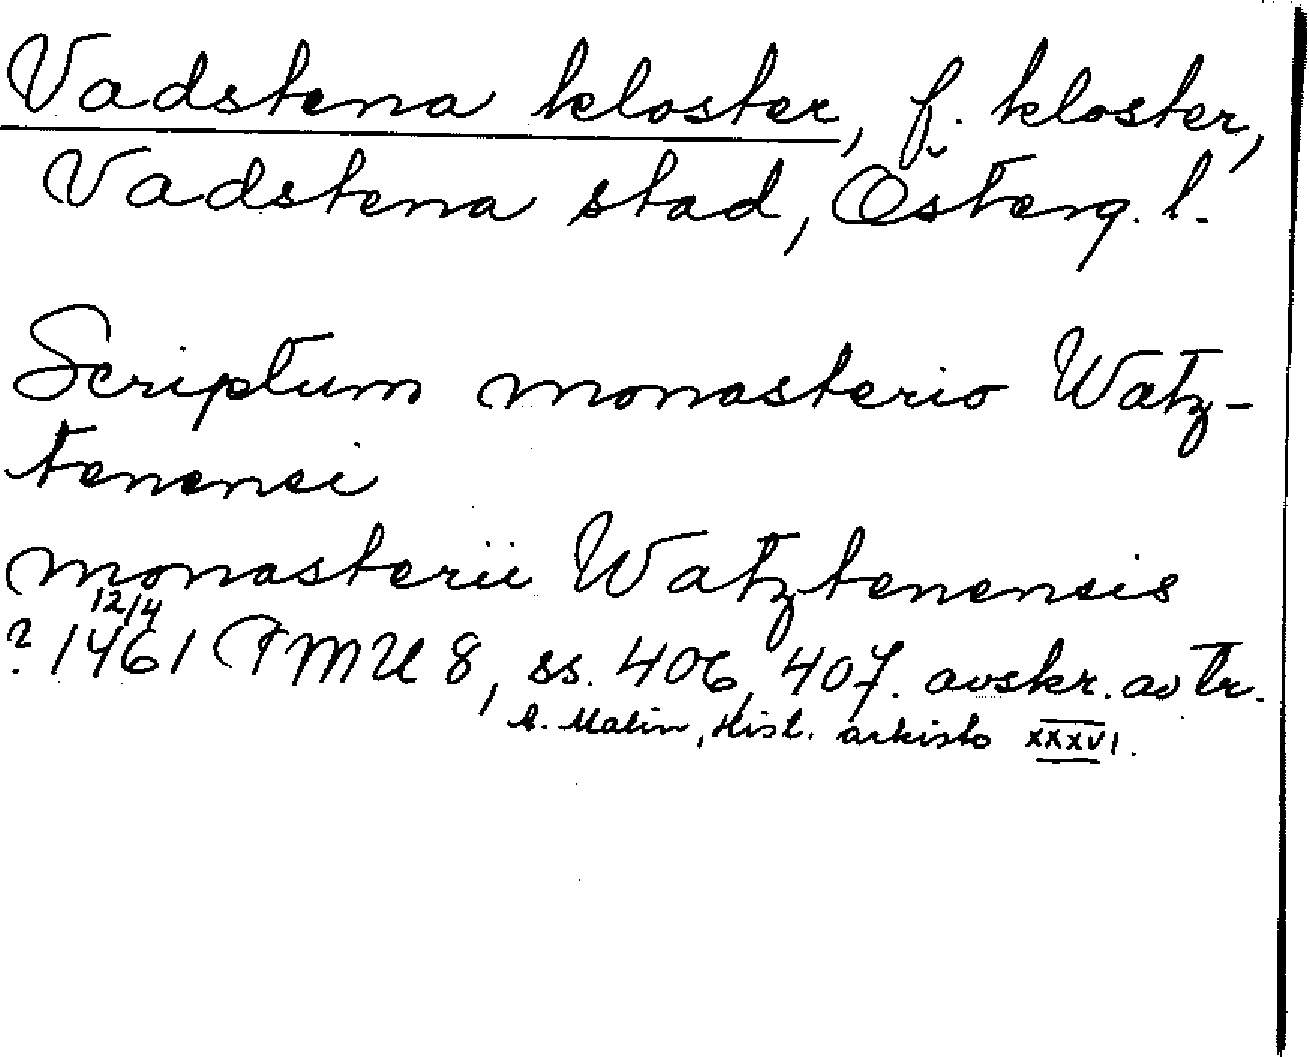 Vadstena kloster, f. kloster,
Vadstena stad, Österg. l.
Scriptum monasterio Watz-
tenensi
monasterii Watztenensis
? 1461 12/4 FMU 8, ss. 406, 407. avskr. av tr.
A. Malin, Hist. arkisto XXXVI.